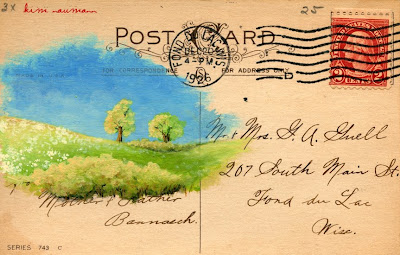 3x
25
POST CARD
FOND DU LAC WIS.
4-PM
1926
FOR CORRESPONDENCE
FOR ADDRESS ONLY
2 2
Mr & Mrs. G. A. Guell
207 South Main St.
Fond du Lac
Wisc.
Mother & Father
Bannasch.
SERIES 743 C